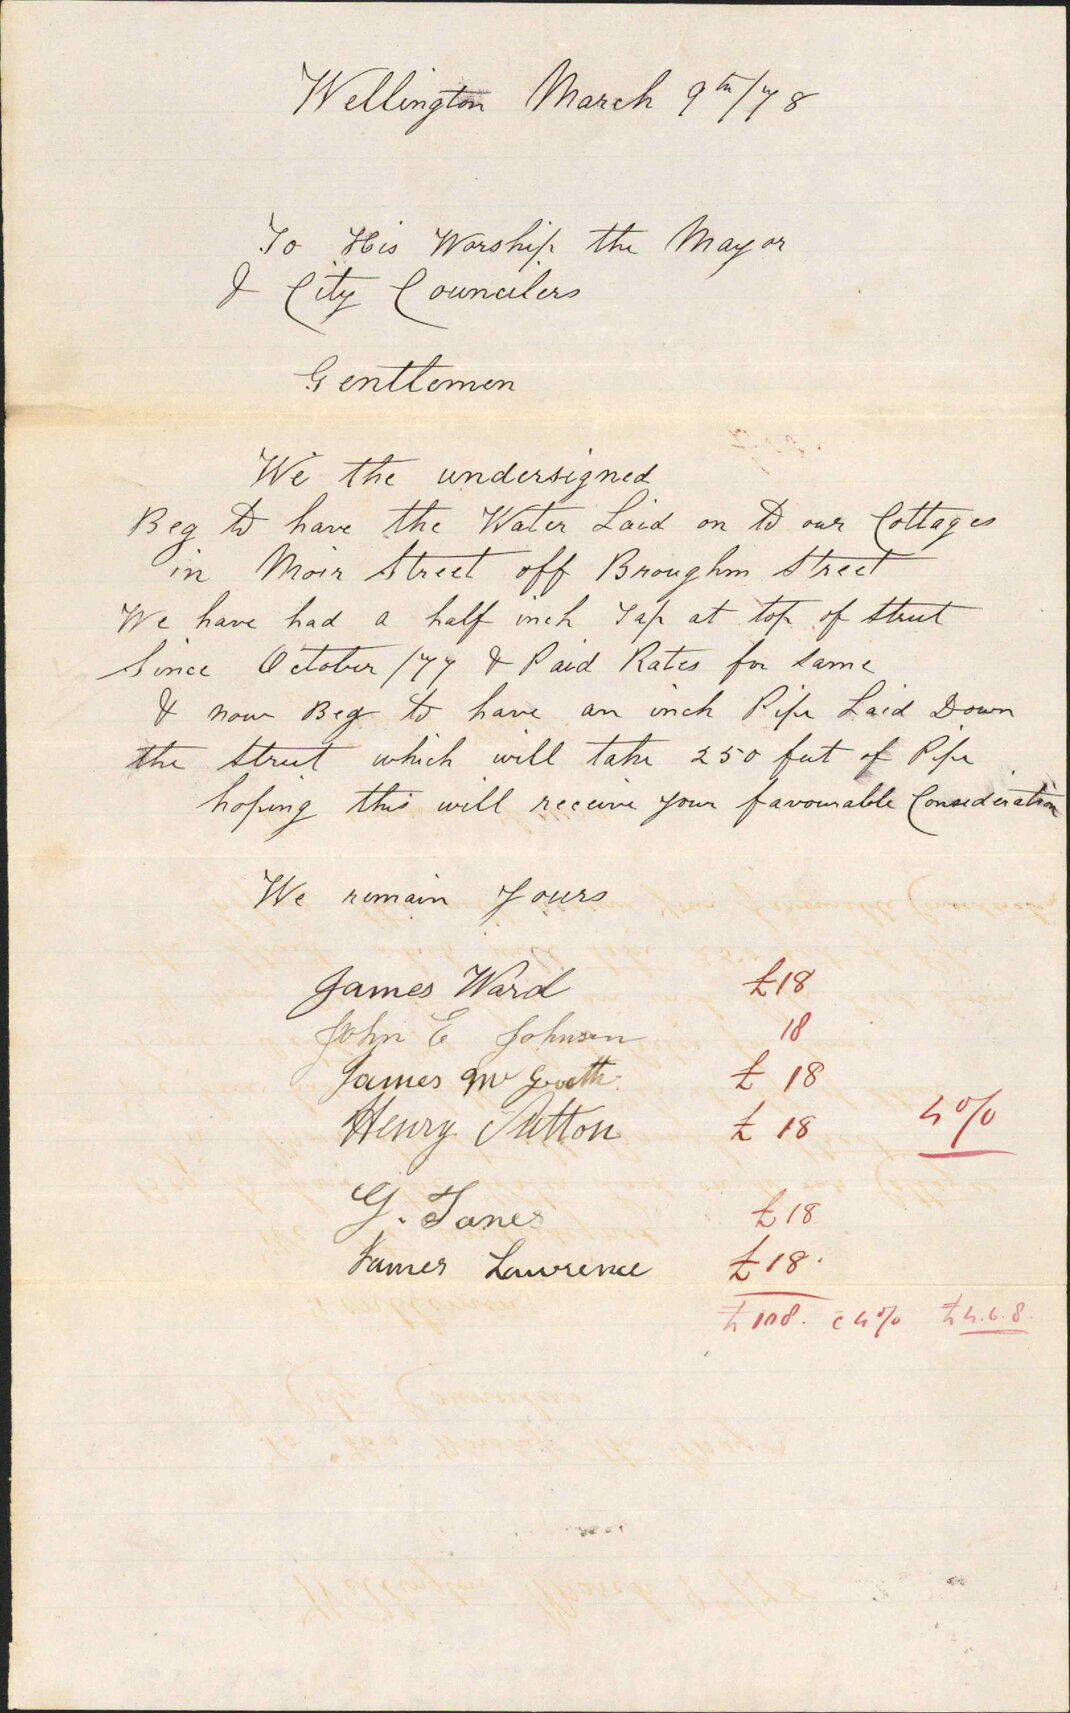 Wellington March 9th/78
To His Worship the Mayor
& City Councilers
Gentlemen
We the undersigned
Beg to have the Water Laid on to our Cottages
in Moir Street off Broughm Street
We have had a half inch Tap at top of Street
Since October /77 & Paid Rates for same
& now Beg to have an inch Pipe Laid Down
the Street which will take 250 feet of Pipe
hoping this will receive your favourable Consideration
We remain Yours
James Ward £18
John E Johnson 18
James Mc £ 18
Henry Sutton £ 18 4%
G. Janes £18
James Lawrence £18.
£108. c 4% £4.6.8.